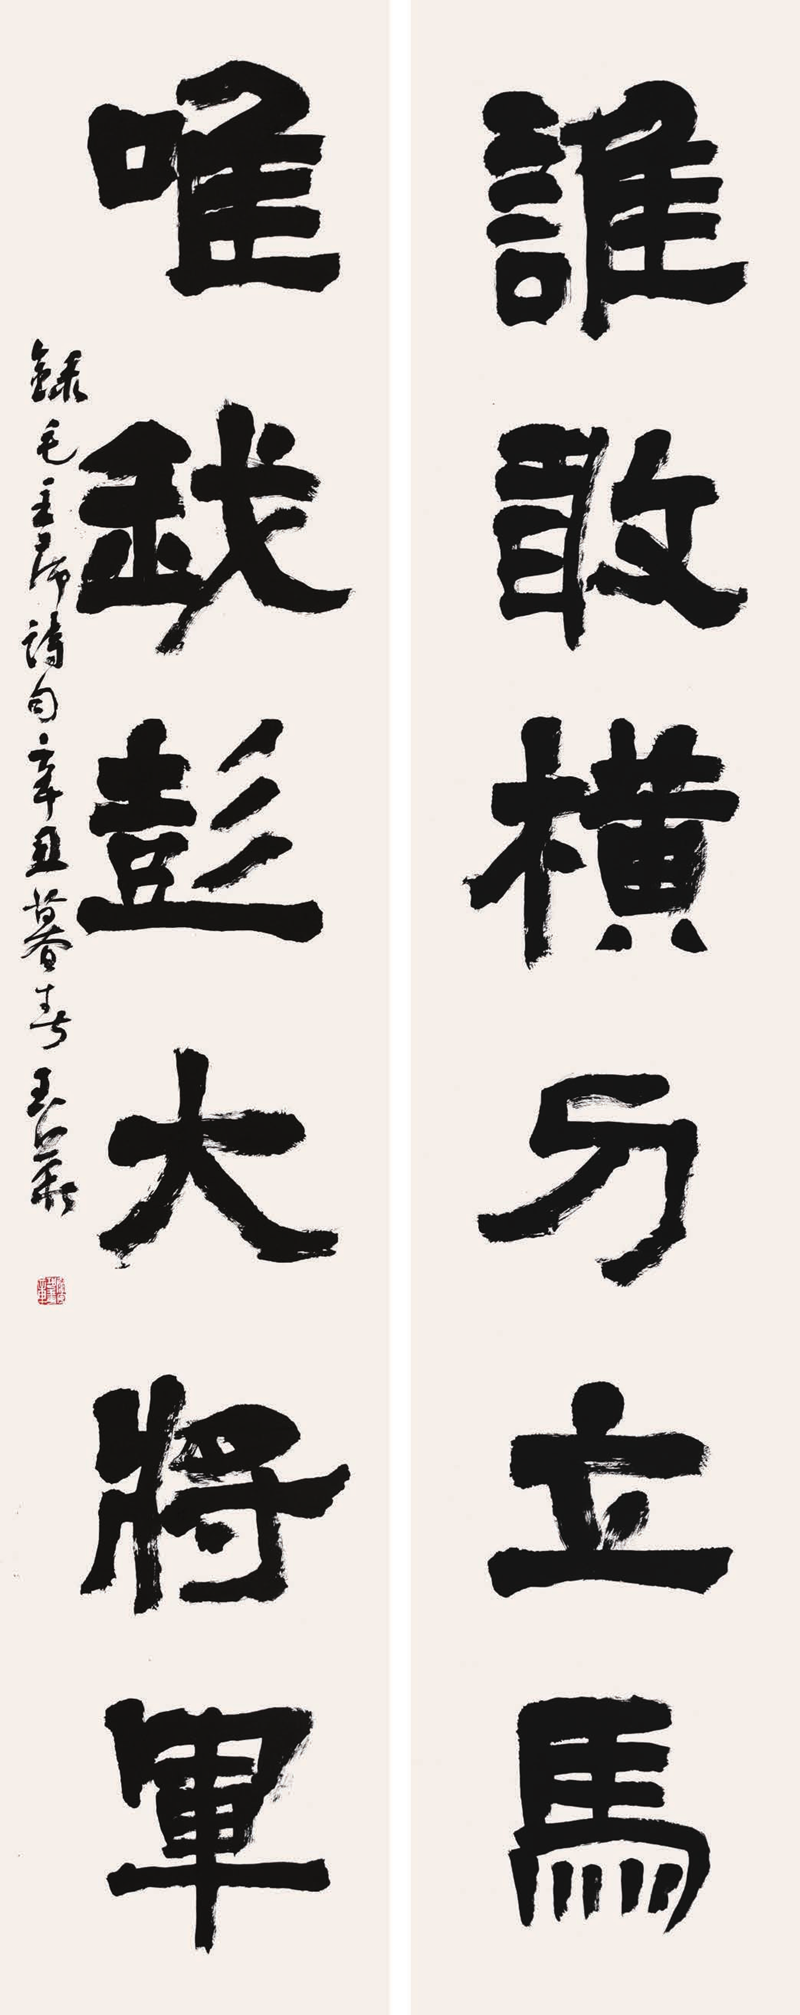 誰敢橫刀立馬
唯我彭大將軍
錄毛主席詩句辛丑暮春